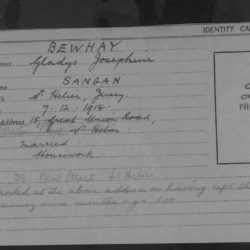 IDENTITY CA
BEWHAY
Gladys Josephine
SANGAN
St Helier, Jersey
7-12-1914
Address 15, Great Union Road,
St Helier
Married
Housework
23 New Street St Helier
at the above address on having left the
some months ago
PH